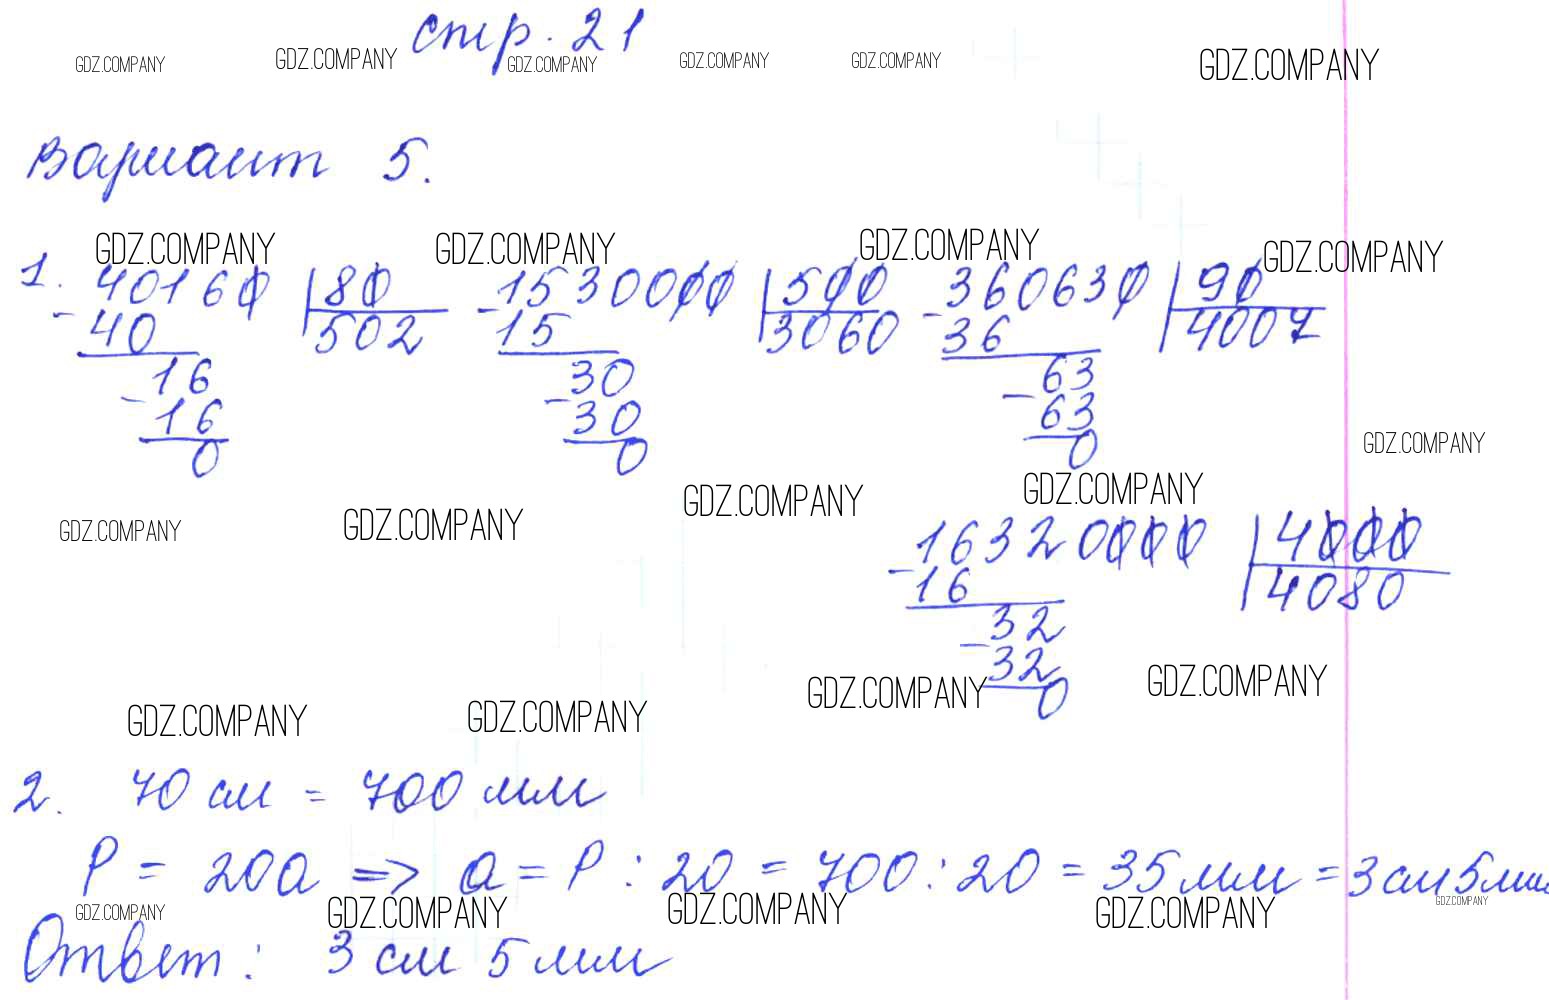 стр. 21
GDZ.COMPANY GDZ.COMPANY GDZ.COMPANY GDZ.COMPANY GDZ.COMPANY GDZ.COMPANY
Вариант 5.
GDZ.COMPANY GDZ.COMPANY GDZ.COMPANY GDZ.COMPANY
1. 40160 | 80 1530000 | 500 360630 | 90
- 40 502 - 15 3060 - 36 4007
16 30 63
- 16 - 30 - 63
0 0 0
GDZ.COMPANY
GDZ.COMPANY GDZ.COMPANY GDZ.COMPANY GDZ.COMPANY
16320000 | 4000
- 16 4080
32
- 32
0
GDZ.COMPANY GDZ.COMPANY GDZ.COMPANY GDZ.COMPANY
2. 70 см = 700 мм
P = 20a => a = P : 20 = 700 : 20 = 35 мм = 3 см 5 мм
GDZ.COMPANY GDZ.COMPANY GDZ.COMPANY GDZ.COMPANY GDZ.COMPANY
Ответ: 3 см 5 мм